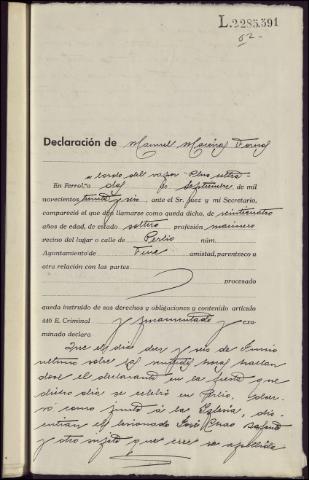 L.2285.391
62-
Declaración de Manuel
a bordo del vapor Plus ultra-
En Ferrol, a dos de Septiembre de mil
novecientos treinta y seis ante el Sr. Juez y mi Secretario,
compareció el que dijo llamarse como queda dicho, de veinticuatro
años de edad, de estado soltero profesión marinero
vecino del lugar o calle de Perlío núm.
Ayuntamiento de Fene amistad, parentesco u
otra relación con las partes
procesado
queda instruído de sus derechos y obligaciones y contenido artículo
446 E. Criminal y juramentado y con-
minado declaro
Que el día diez y seis de Junio
último sobre las hora hallan
dose el declarante en la fiesta que
dicho día se celebró en Perlío,
como junto á la Iglesia, dis-
cutían el lesionado José
y otro sujeto que cree se apellida